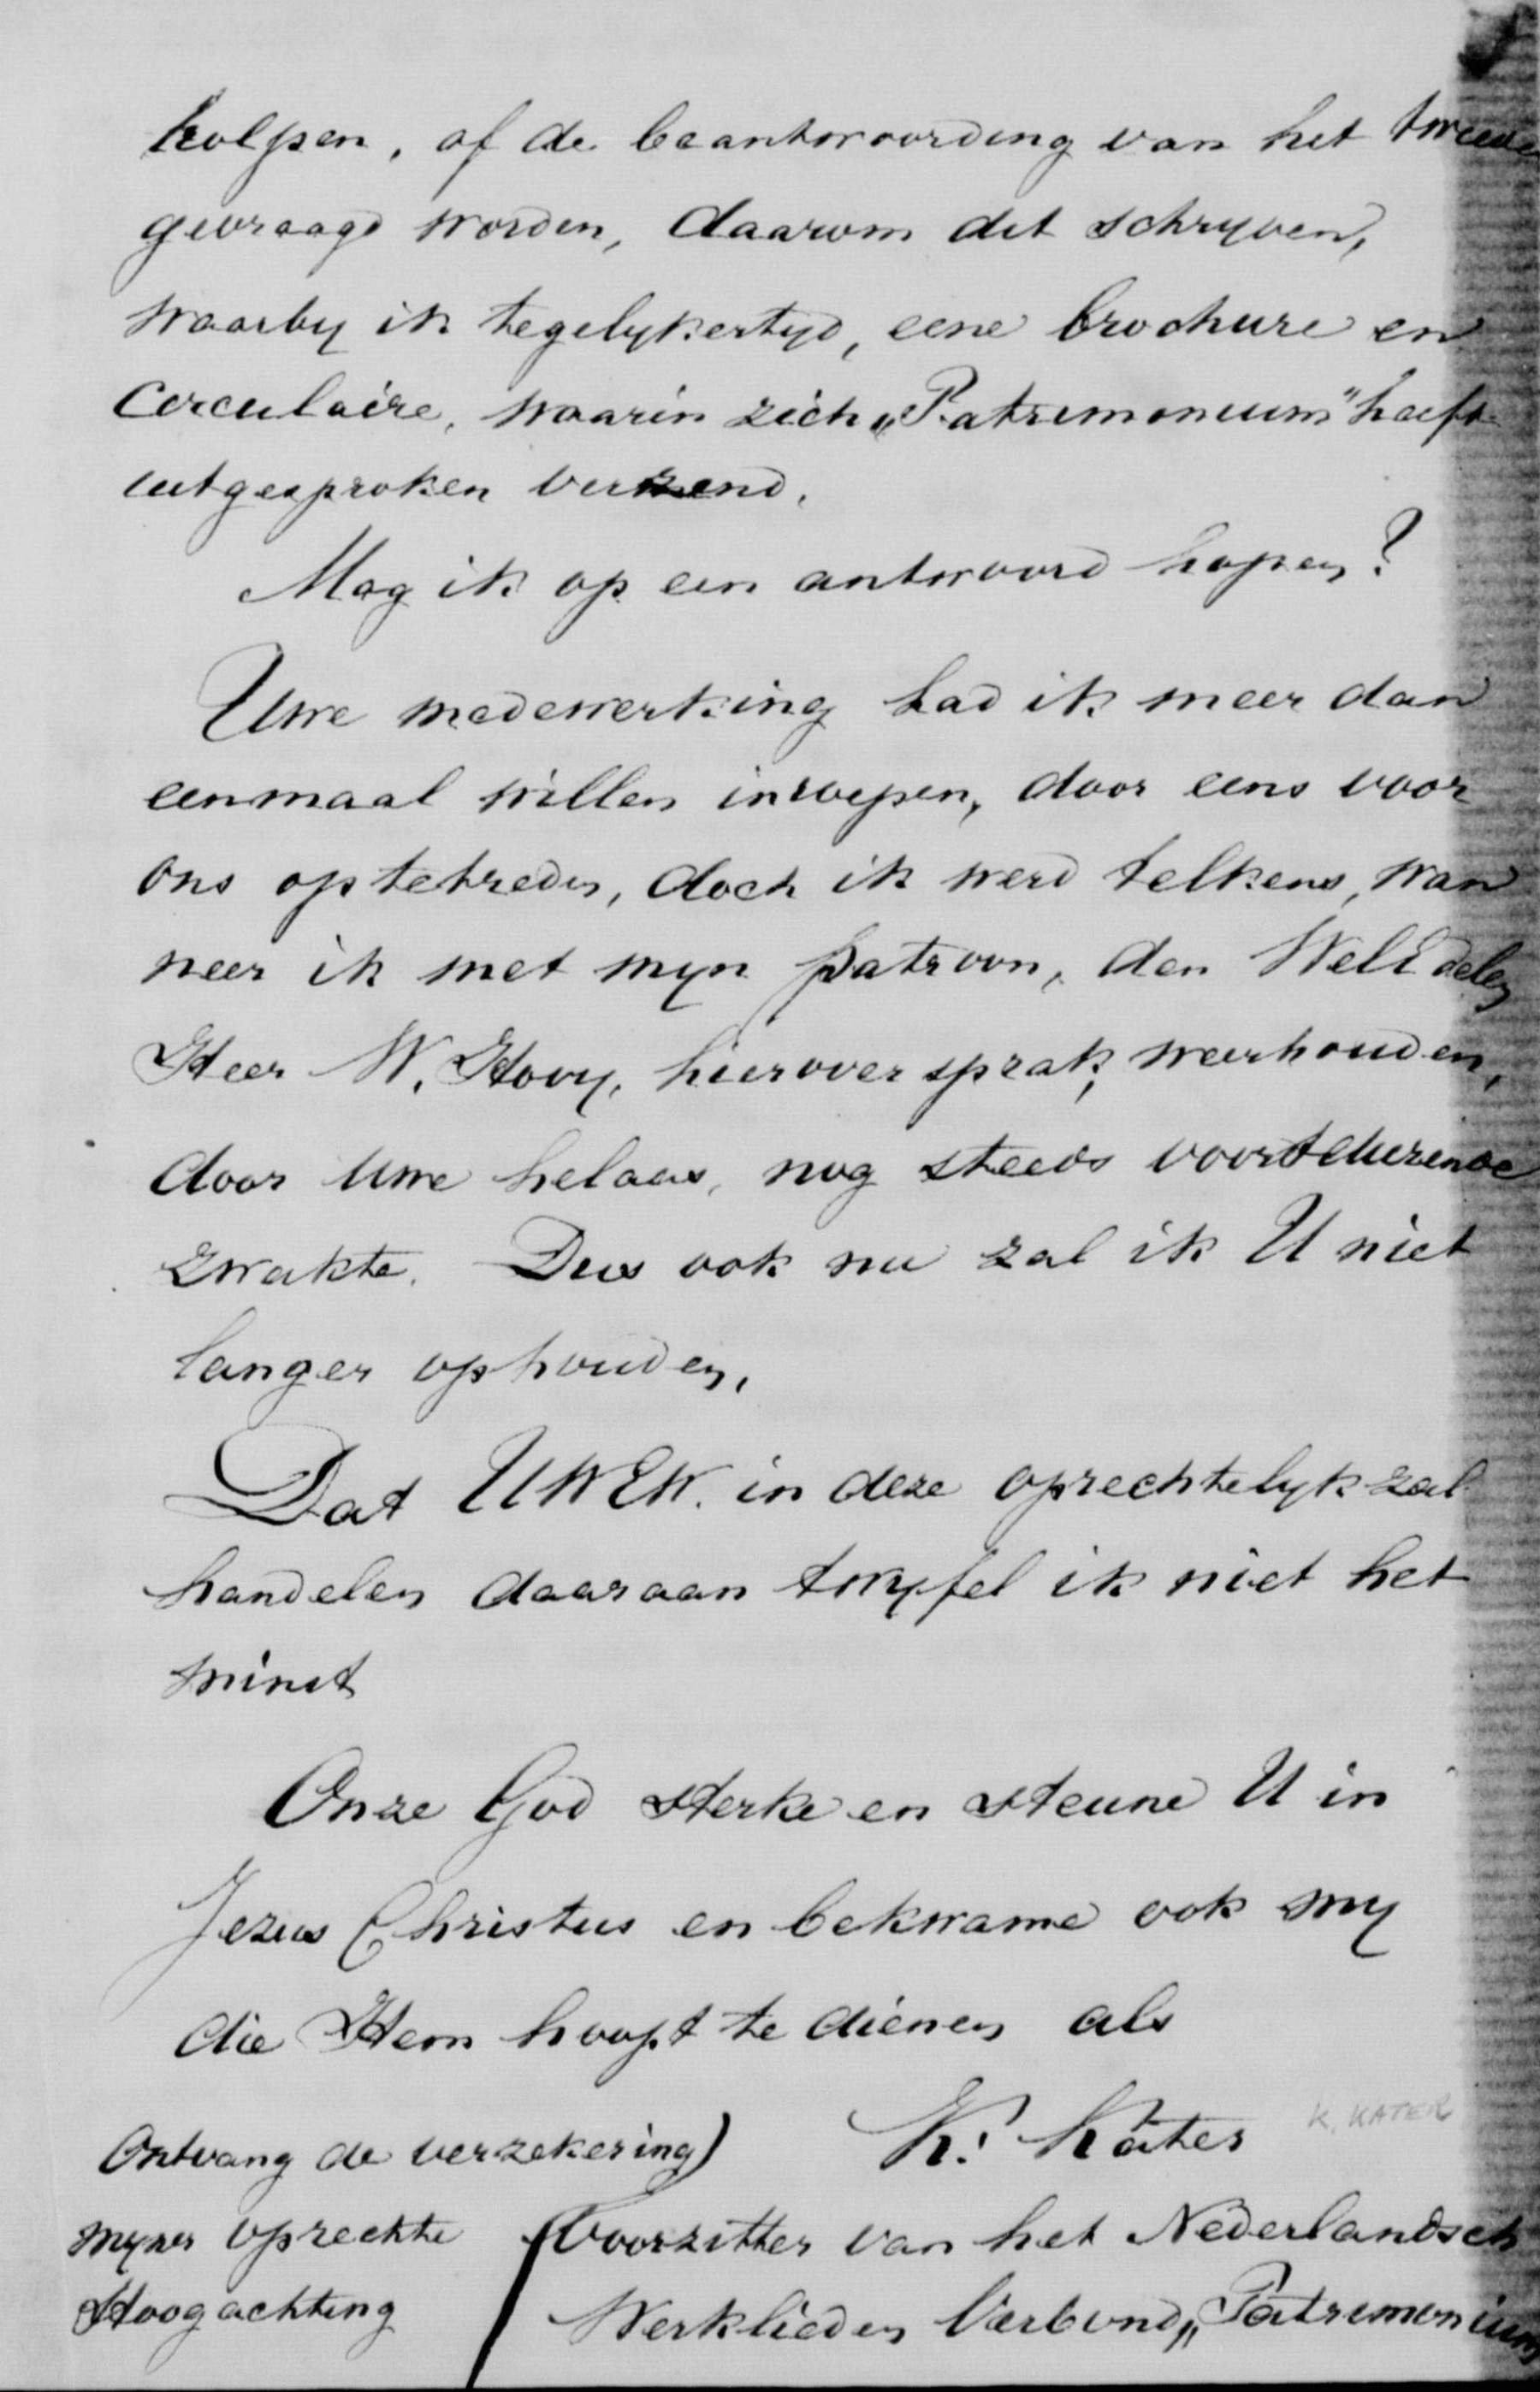 holpen, of de beantwoording van het tweede
gevraagd worden, daarom dit schryven,
waarby ik tegelykertyd, eene brochure en
Circulaire, waarin zich „Patrimonium" heeft
uitgesproken verzend.
Mag ik op een antwoord hopen?
Uwe medewerking had ik meer dan
eenmaal willen inroepen, door eens voor
ons optetreden, doch ik werd telkens, wan
neer ik met myn patroon, den WelEdelen
Heer W. Hovy, hierover sprak, weerhouden,
door Uwe helaas, nog steeds voortdurende
zwakte. Dus ook nu zal ik U niet
langer ophouden,
Dat UWEW. in deze oprechtelyk zal
handelen daaraan twyfel ik niet het
minst
Onze God sterke en steune U in
Jezus Christus en bekwame ook my
die Hem hoopt te dienen als
K. Kater
K. KATER
Ontvang de verzekering)
myner oprechte
Hoogachting
Voorzitter van het Nederlandsch
Werklieden Verbond „Patrimonium